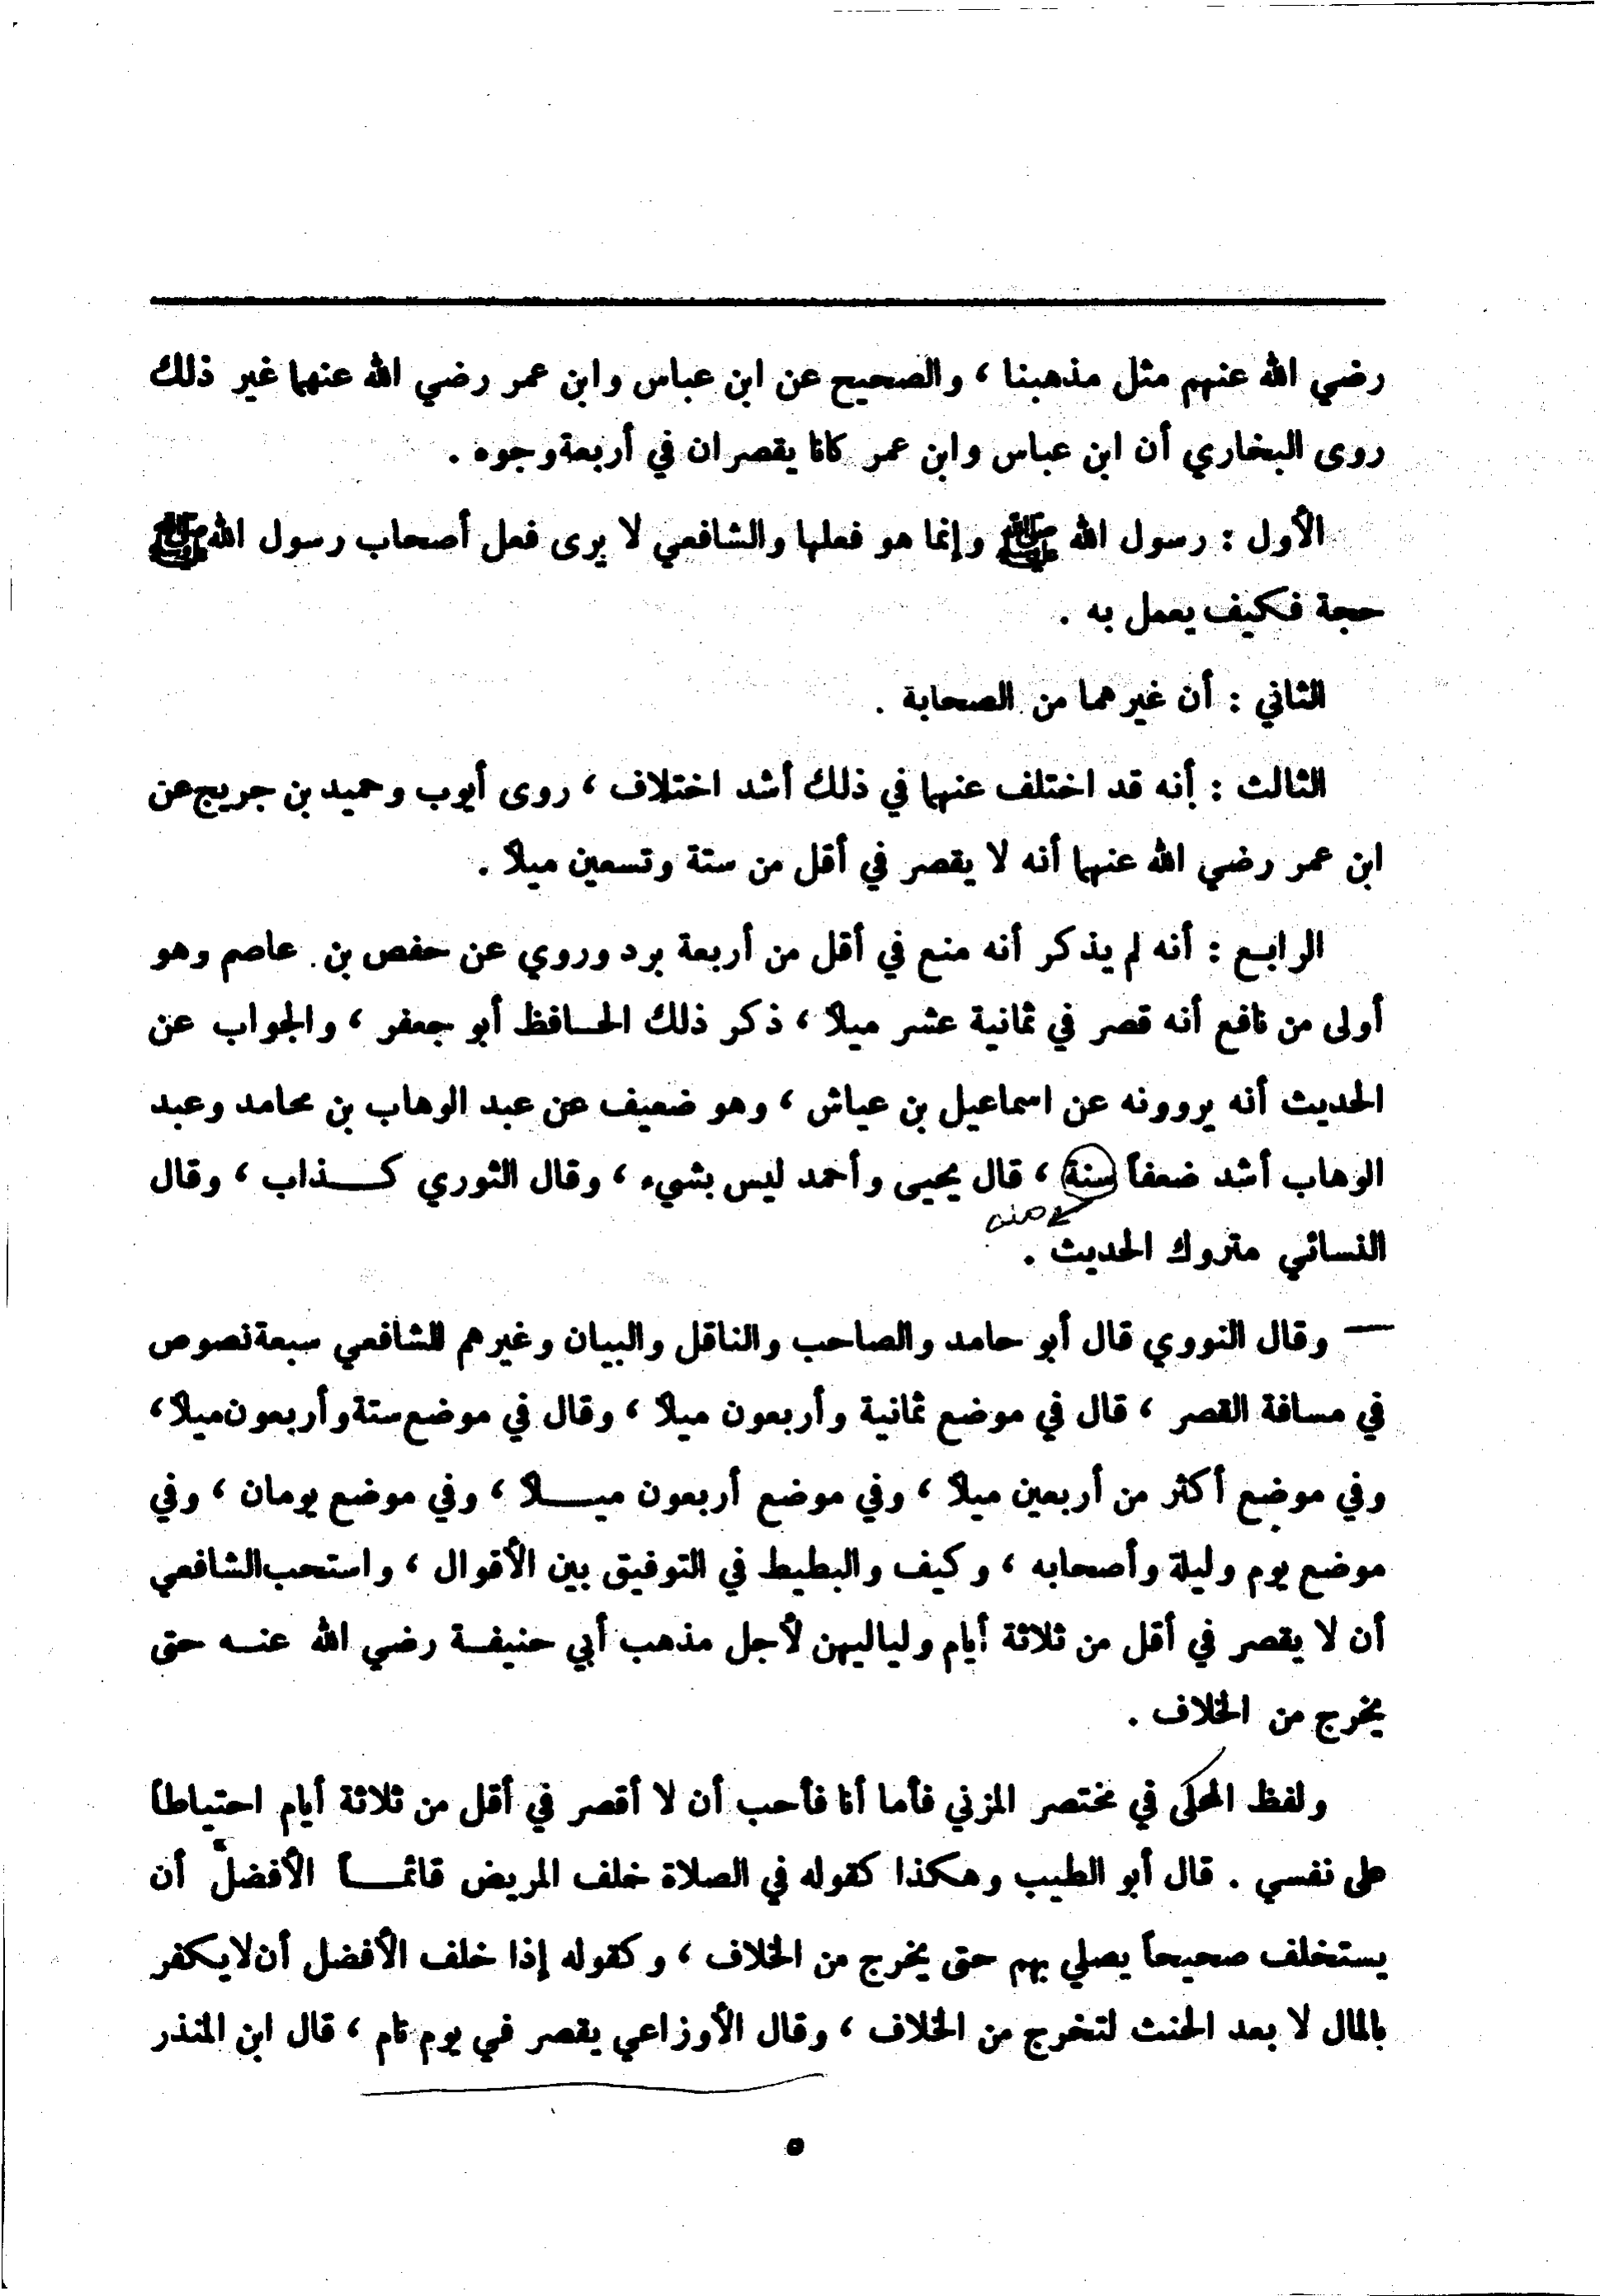 رضي الله عنهم مثل مذهبنا ، والصحيح عن ابن عباس وابن عمر رضي الله عنهما غير ذلك
روى البخاري أن ابن عباس وابن عمر كانا يقصران في أربعة وجوه .
الأول : رسول الله ﷺ وإنما هو فعلها والشافعي لا يرى فعل أصحاب رسول الله ﷺ
حجة فكيف يعمل به .
الثاني : أن غيرهما من الصحابة .
الثالث : أنه قد اختلف عنهما في ذلك أشد اختلاف ، روى أيوب وحميد بن جريج عن
ابن عمر رضي الله عنهما أنه لا يقصر في أقل من ستة وتسعين ميلاً .
الرابع : أنه لم يذكر أنه منع في أقل من أربعة برد وروي عن حفص بن عاصم وهو
أولى من نافع أنه قصر في ثمانية عشر ميلاً ، ذكر ذلك الحافظ أبو جعفر ، والجواب عن
الحديث أنه يروونه عن اسماعيل بن عياش ، وهو ضعيف عن عبد الوهاب بن محامد وعبد
الوهاب أشد ضعفاً سنة ، قال يحيى وأحمد ليس بشيء ، وقال الثوري كذاب ، وقال
منه
النسائي متروك الحديث .
— وقال النووي قال أبو حامد والصاحب والناقل والبيان وغيرهم للشافعي سبعة نصوص
في مسافة القصر ، قال في موضع ثمانية وأربعون ميلاً ، وقال في موضع ستة وأربعون ميلاً ،
وفي موضع أكثر من أربعين ميلاً ، وفي موضع أربعون ميلاً ، وفي موضع يومان ، وفي
موضع يوم وليلة وأصحابه ، وكيف والبطيط في التوفيق بين الأقوال ، واستحب الشافعي
أن لا يقصر في أقل من ثلاثة أيام ولياليهن لأجل مذهب أبي حنيفة رضي الله عنه حتى
يخرج من الخلاف .
ولفظ المحكى في مختصر المزني فأما أنا فأحب أن لا أقصر في أقل من ثلاثة أيام احتياطاً
على نفسي . قال أبو الطيب وهكذا كقوله في الصلاة خلف المريض قائماً الأفضل أن
يستخلف صحيحاً يصلي بهم حتى يخرج من الخلاف ، وكقوله إذا خلف الأفضل أن لا يكفر
بالمال لا بعد الحنث لتخرج من الخلاف ، وقال الأوزاعي يقصر في يوم تام ، قال ابن المنذر
٥